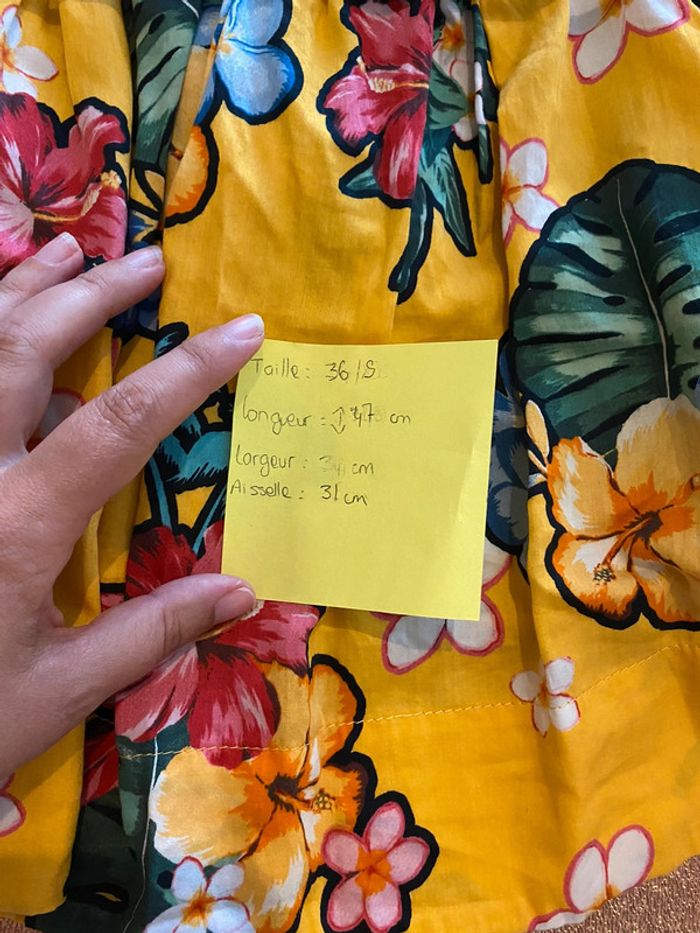 Taille : 36/S
longueur : ↕ 47 cm
largeur : cm
Aisselle : 31 cm